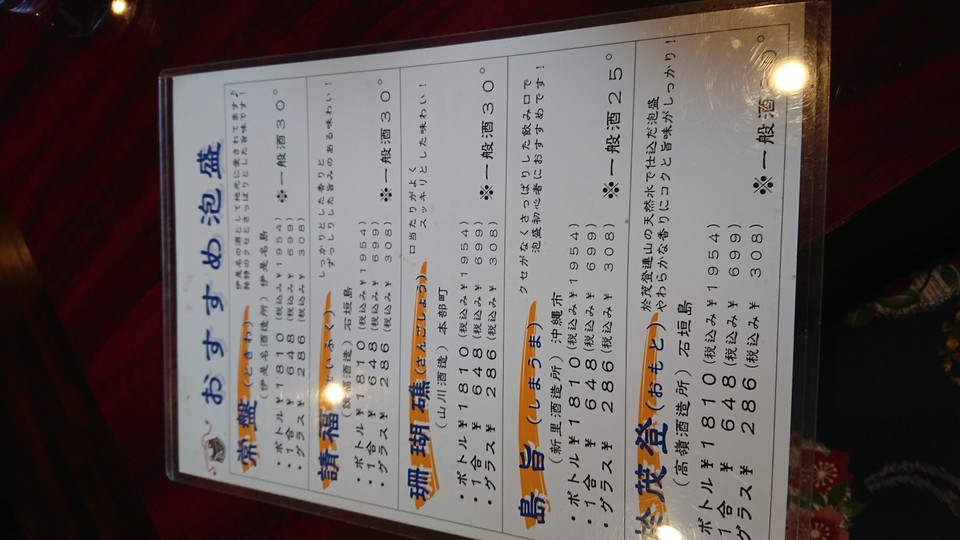 おすすめ泡盛
常盤(ときわ)
伊是名の酒として地元に愛されてます♪
独特のクセとさっぱりとした旨味です!
(伊是名酒造所) 伊是名島
・ボトル¥1810(税込み¥1954)
・1合¥ 648(税込み¥ 699)
・グラス¥ 286(税込み¥ 308)
※一般酒30°
請福(せいふく)
しっかりとした香りと
ずっしりした旨みのある味わい!
(請福酒造) 石垣島
・ボトル¥1810(税込み¥1954)
・1合¥ 648(税込み¥ 699)
・グラス¥ 286(税込み¥ 308)
※一般酒30°
珊瑚礁(さんごしょう)
口当たりがよく
スッキリとした味わい!
(山川酒造) 本部町
・ボトル¥1810(税込み¥1954)
・1合¥ 648(税込み¥ 699)
・グラス¥ 286(税込み¥ 308)
※一般酒30°
島旨(しまうま)
クセがなくさっぱりした飲み口で
泡盛初心者におすすめです!
(新里酒造所) 沖縄市
・ボトル¥1810(税込み¥1954)
・1合¥ 648(税込み¥ 699)
・グラス¥ 286(税込み¥ 308)
※一般酒25°
於茂登(おもと)
於茂登連山の天然水で仕込だ泡盛
やわらかな香りにコクと旨味がしっかり!
(高嶺酒造所) 石垣島
ボトル¥1810(税込み¥1954)
1合¥ 648(税込み¥ 699)
グラス¥ 286(税込み¥ 308)
※一般酒